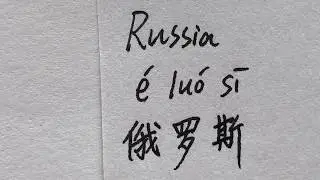 Russia
é luó sī
俄罗斯